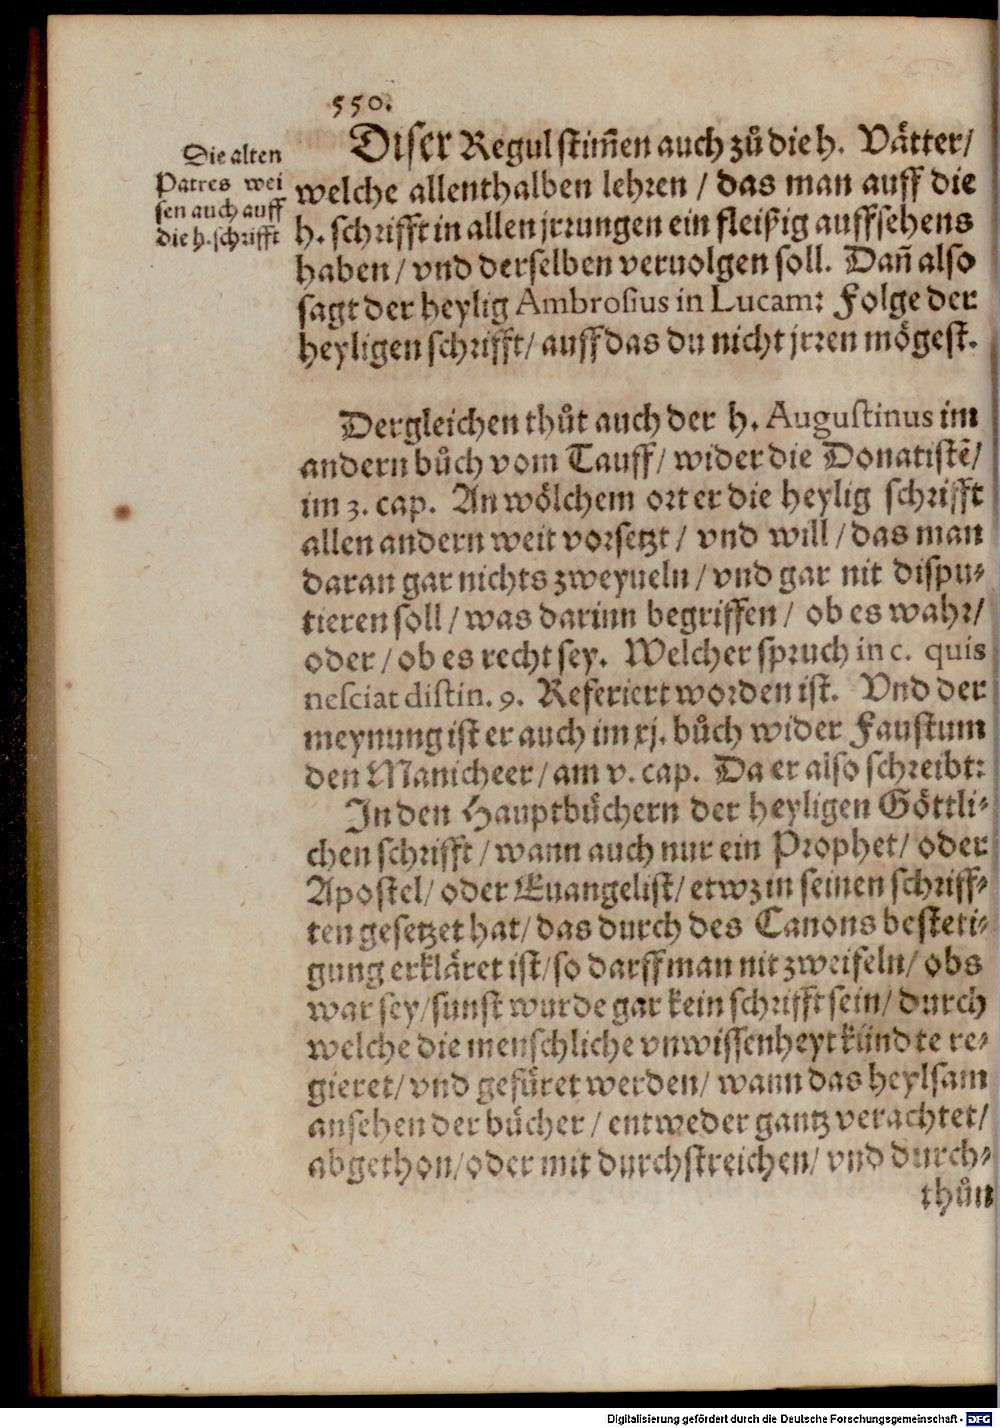 550.
Die alten
Patres wei
sen auch auff
die h. schrifft
Diser Regul stim̃en auch zů die h. Vätter/
welche allenthalben lehren / das man auff die
h. schrifft in allen jrrungen ein fleißig auffsehens
haben / vnd derselben veruolgen soll. Dañ also
sagt der heylig Ambrosius in Lucam: Folge der
heyligen schrifft/ auff das du nicht jrren mögest.
Dergleichen thůt auch der h. Augustinus im
andern bůch vom Tauff/ wider die Donatistẽ/
im 3. cap. An wölchem ort er die heylig schrifft
allen andern weit vorsetzt / vnd will / das man
daran gar nichts zweyueln / vnd gar nit dispu-
tieren soll / was darinn begriffen / ob es wahr/
oder / ob es recht sey. Welcher spruch in c. quis
nesciat distin. 9. Referiert worden ist. Vnd der
meynung ist er auch im xj. bůch wider Faustum
den Manicheer / am v. cap. Da er also schreibt:
In den Hauptbüchern der heyligen Göttli-
chen schrifft / wann auch nur ein Prophet/ oder
Apostel/ oder Euangelist/ etwz in seinen schriff-
ten gesetzet hat/ das durch des Canons besteti-
gung erkläret ist/ so darff man nit zweifeln/ obs
war sey/ sunst wurde gar kein schrifft sein/ durch
welche die menschliche vnwissenheyt kündte re-
gieret/ vnd gefüret werden/ wann das heylsam
ansehen der bücher / entweder gantz verachtet/
abgethon/ oder mit durchstreichen/ vnd durch-
thůn
Digitalisierung gefördert durch die Deutsche Forschungsgemeinschaft - DFG